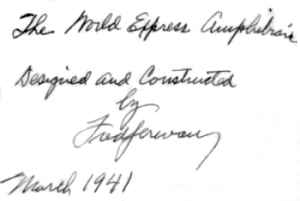 The World Express Amphibian
Designed and Constructed
by
March 1941